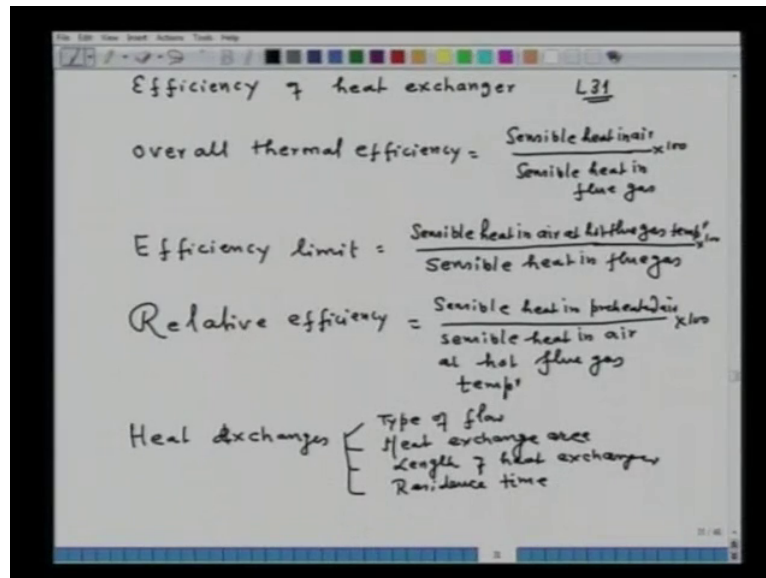 File Edit View Insert Actions Tools Help
Efficiency of heat exchanger L31
overall thermal efficiency = Sensible heat in air ×100
Sensible heat in
flue gas
Efficiency limit = Sensible heat in air at hot flue gas tempr ×100
Sensible heat in flue gas
Relative efficiency = Sensible heat in preheated air ×100
sensible heat in air
at hot flue gas
tempr
Heat exchanges Type of flow
Heat exchange area
Length of heat exchanger
Residence time